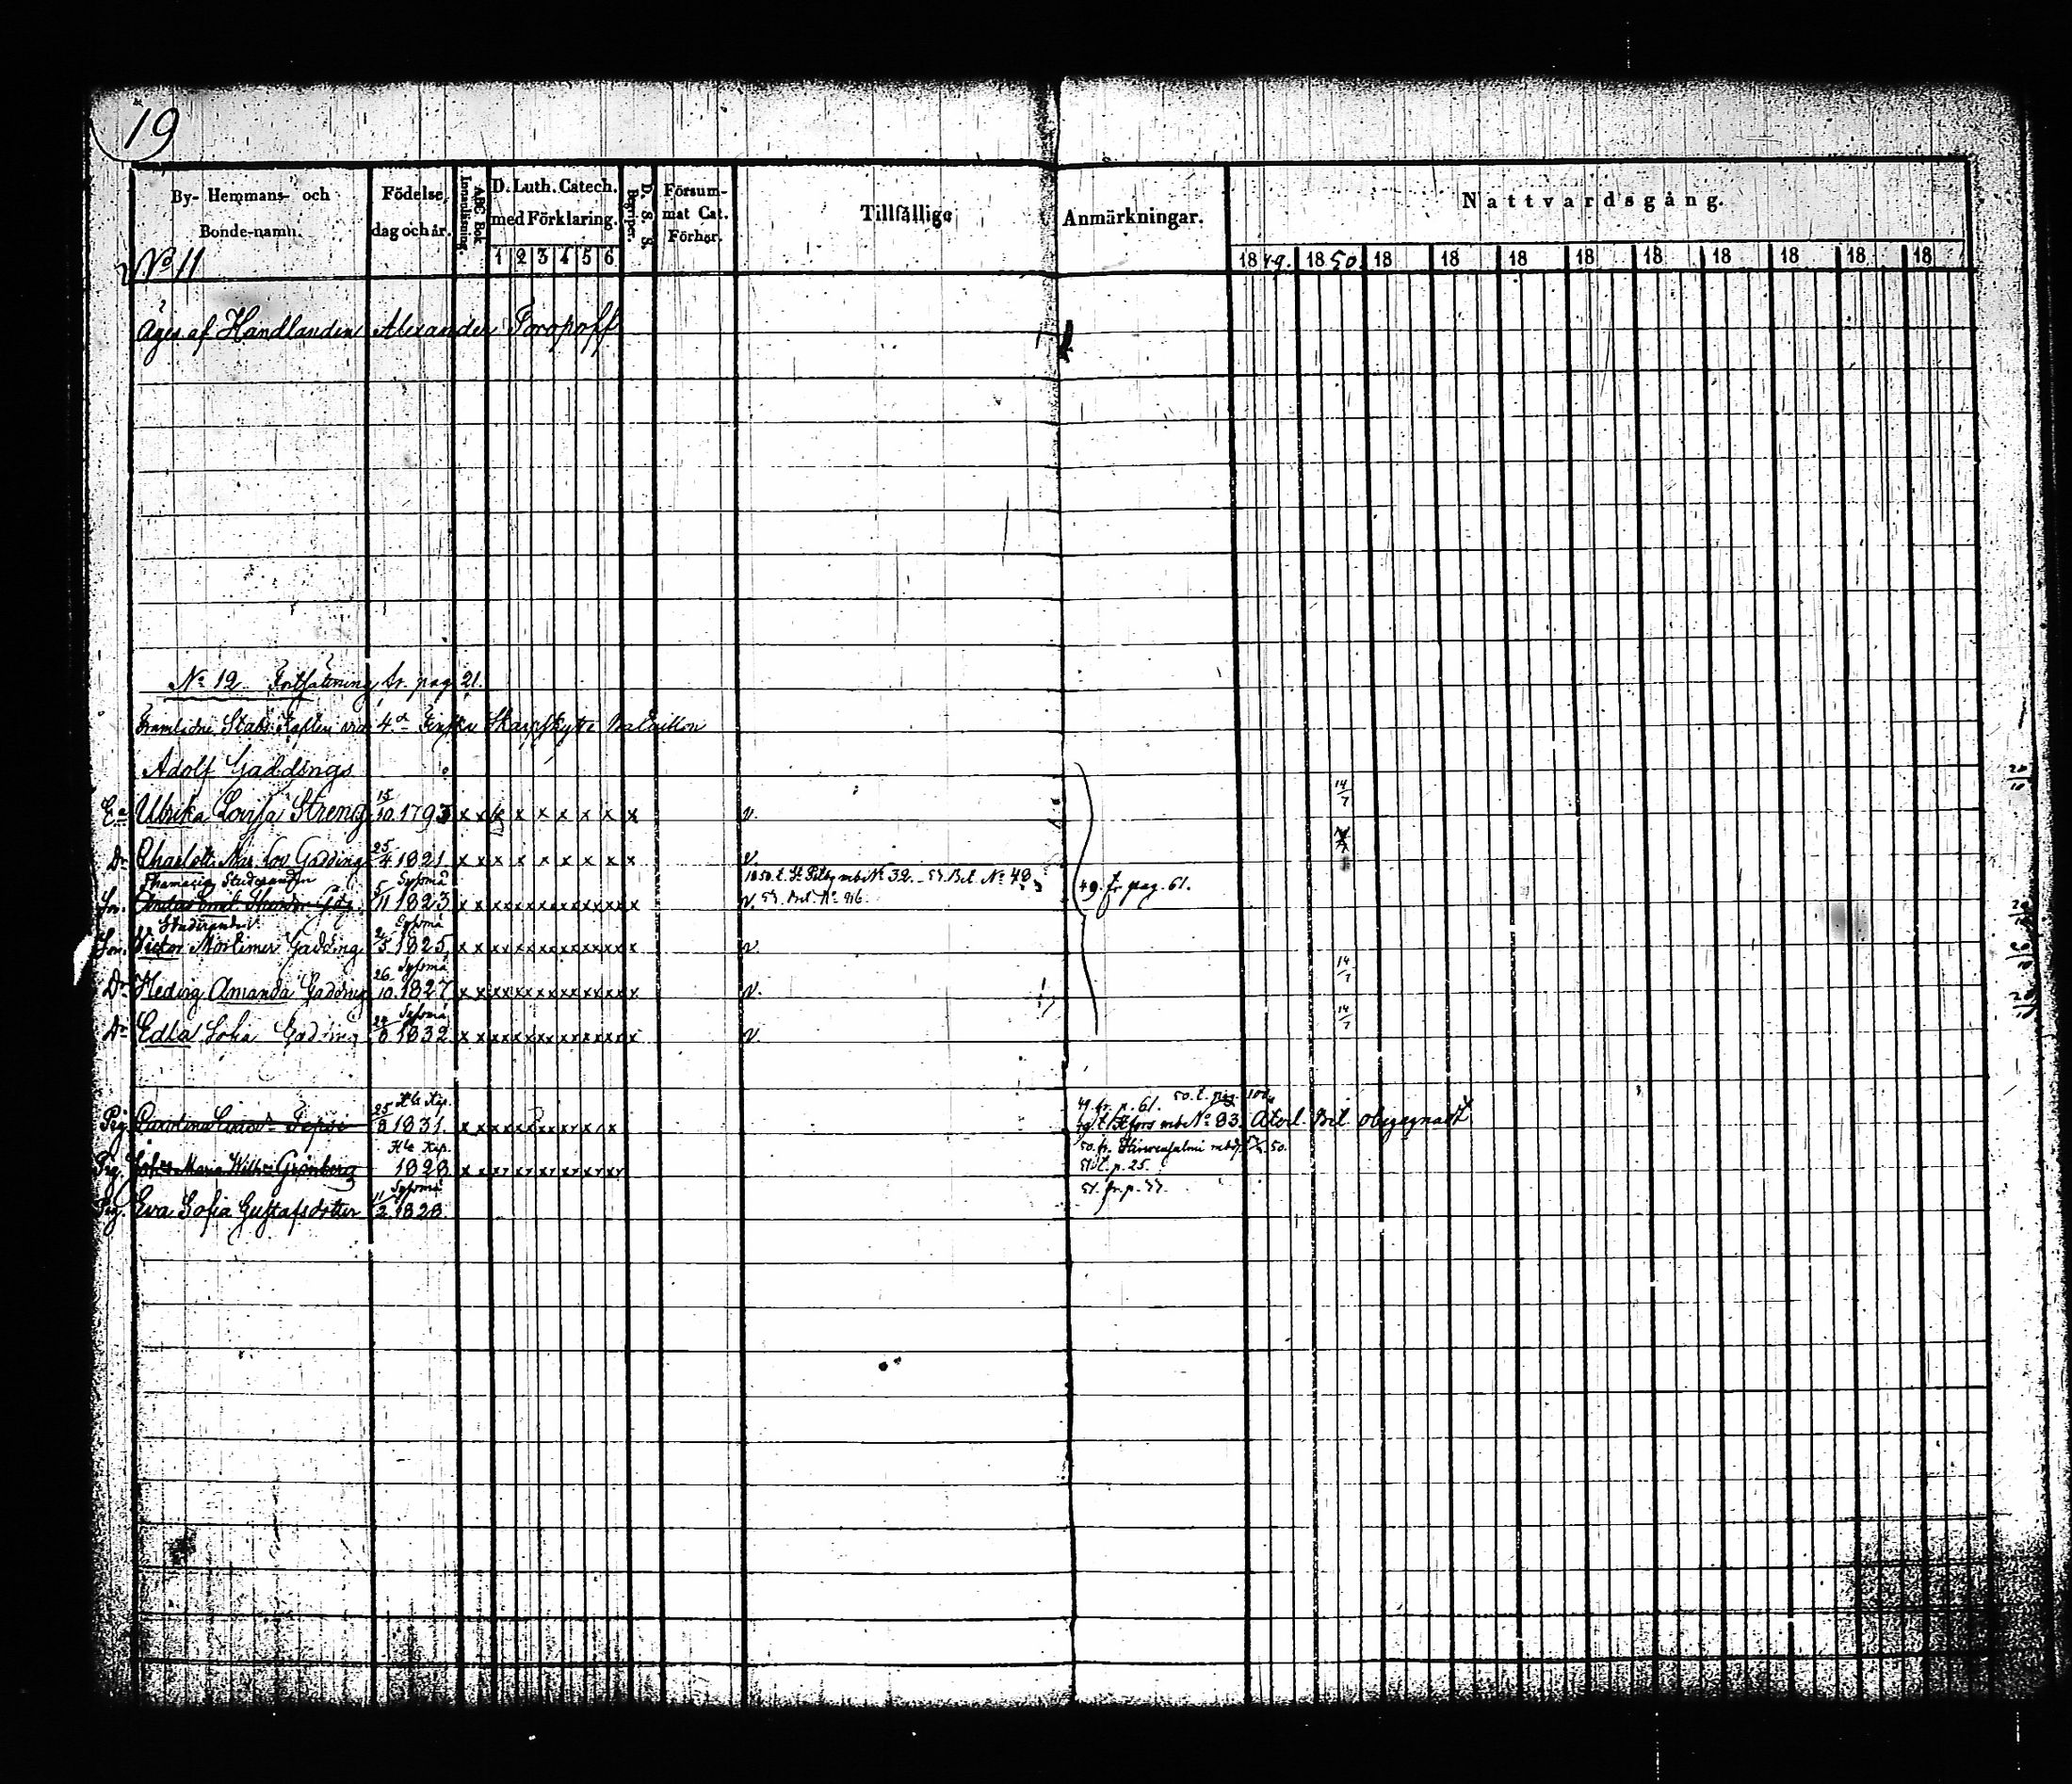 19
By- Hemmans- och Bonde-namn.
Födelse dag och år.
ABC Bok
Innanläsning.
D. Luth. Catech. med Förklaring.
1 2 3 4 5 6
D. S. S.
Begriper.
Försummat Cat. Förhör.
Tillfällige Anmärkningar.
Nattvardsgång.
1849. 1850. 18 18 18 18 18 18 18 18 18
No 11
Äges af Handlanden Alexander Toropoff
No 12 Fortsättning fr. pag 21.
Framlidne Stabs Kapten vid 4de Finska Skarpskytte Bataillon
Adolf Gaddings
Ea Ulrika Lovisa Streng 15/10 1793 x x x x x x x x x v. 14/7
Dr Charlott. Mar. Lov. Gadding 25/4 1821 x x x x x x x x x v.
Pharmaciæ Studeranden Sysmä 1850. t. St. Petbg mbs No 32. 51. Bet. No 48
Son. Emil 5/11 1823 v. 51. Bet. No 916. 49. fr. pag. 61.
Studeranden Sysmä
Son. Victor Mortimer Gadding 2/5 1825 v.
Sysmä
Dr Hedvig Amanda Gadding 26/10 1827 v. 14/7
Sysmä
Dr Edla Sofia Gadding 1832 v. 14/7
49. fr. p. 61. 50. t. pag. 104
Pig. Carolina 25/8 1831. H:fors mbs No 93. Åter. Bet obegagnadt
50. fr. mbs 50.
Pig. Maria Wilh:a Grönberg 1828 51. t. p. 25.
Sysmä 51. fr. p. 77.
Pig. Eva Sofia Gustafsdotter 11/2 1828